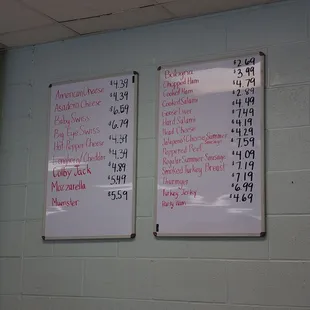 American Cheese $4.39
Asadero Cheese $4.39
Baby Swiss $6.59
Big Eye Swiss $6.79
Hot Pepper Cheese $4.34
Cheddar $4.34
Colby Jack $4.89
Mozzarella $5.49
Muenster $5.59
Bologna $2.69
Chopped Ham $3.99
Cooked Ham $2.89
Cooked Salami $4.49
Goose Liver $7.49
Hard Salami $4.19
Head Cheese $4.29
Jalapeno Cheese Summer Sausage $7.59
Peppered Beef $4.09
Regular Summer Sausage $7.19
Smoked Turkey Breast $7.19
$6.99
Turkey $4.69
Ham